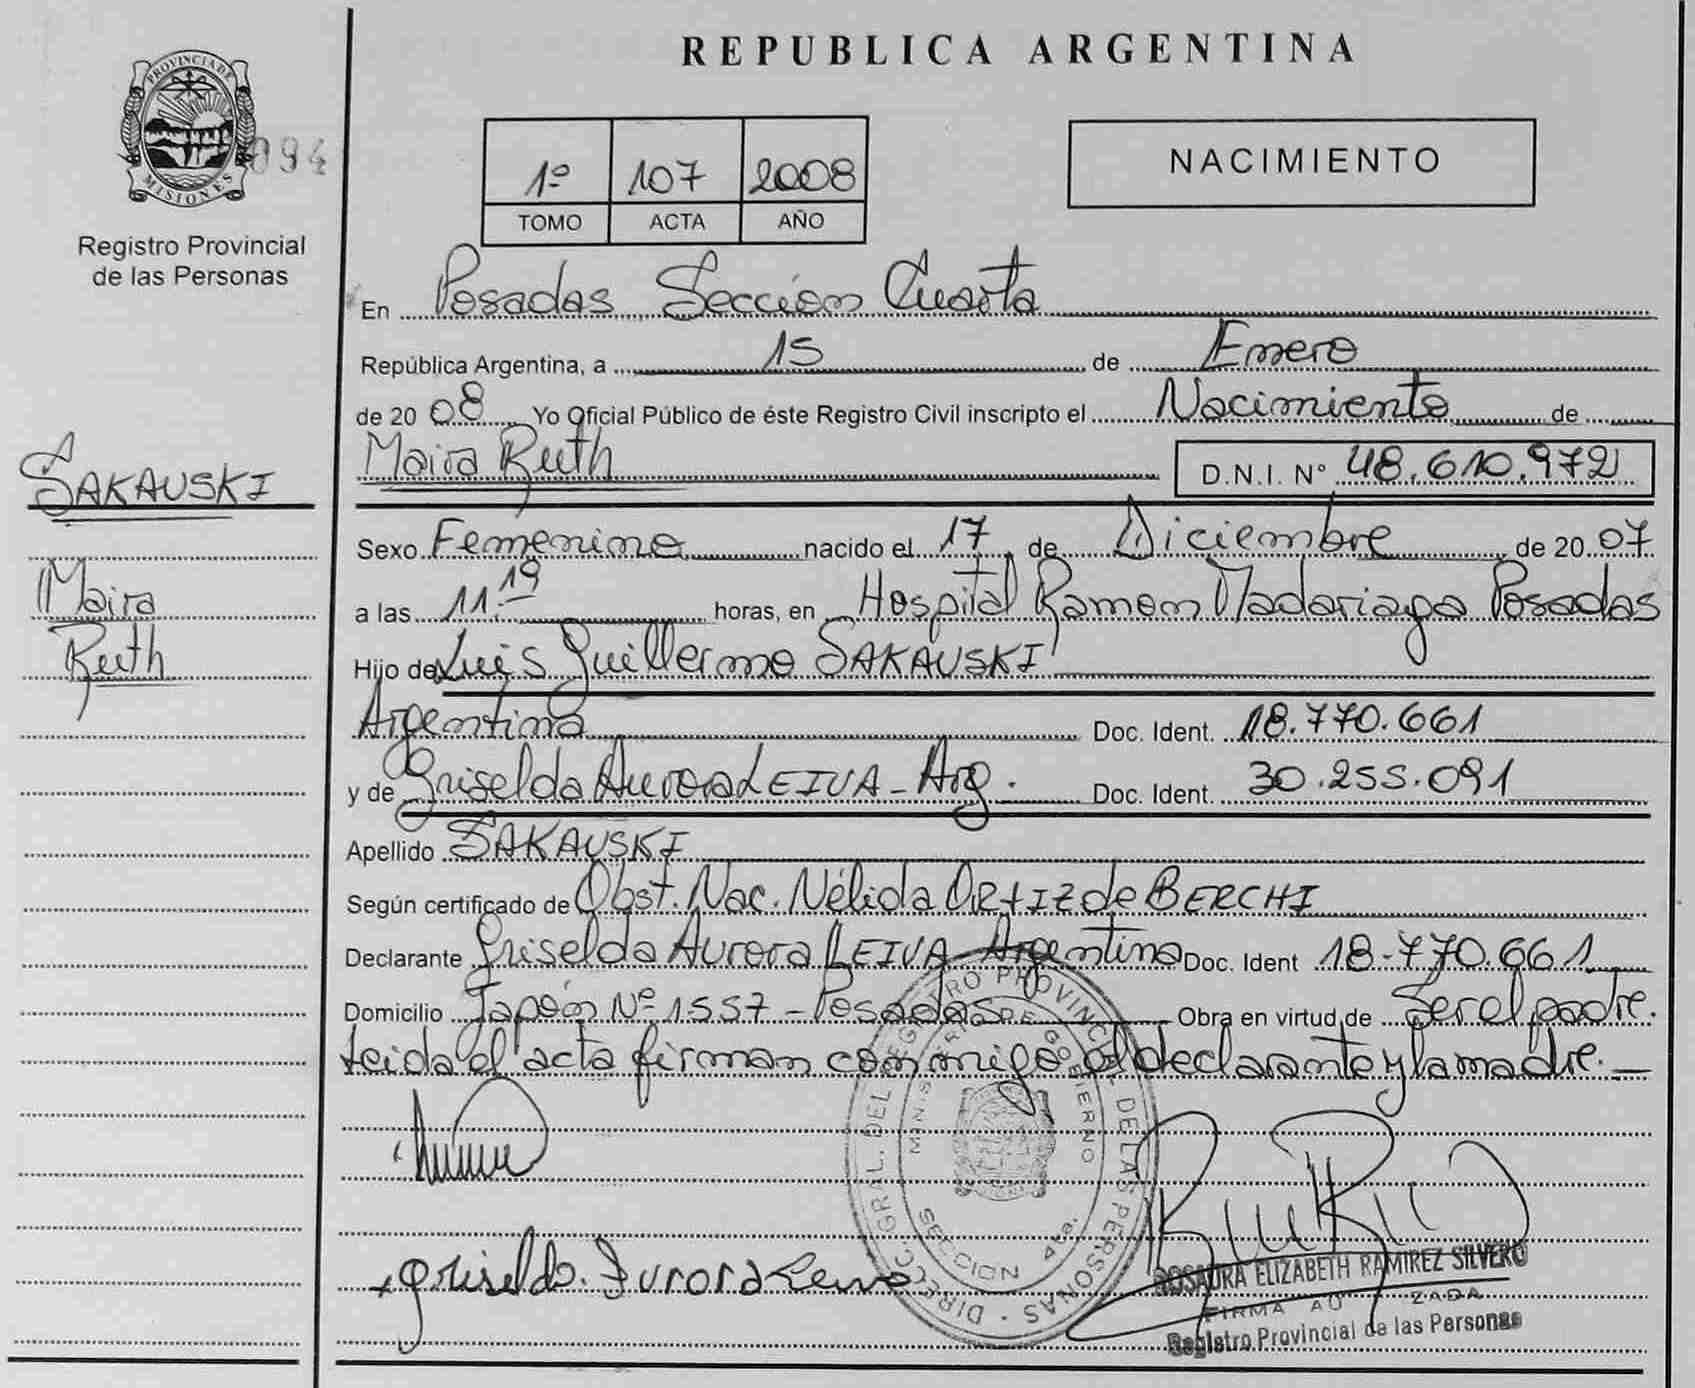 REPUBLICA ARGENTINA
PROVINCIA DE
MISIONES
094
Registro Provincial
de las Personas
1º 107 2008
TOMO ACTA AÑO
NACIMIENTO
En Posadas Sección Cuarta
República Argentina, a 15 de Enero
de 20 08 Yo Oficial Público de éste Registro Civil inscripto el Nacimiento de
Maira Ruth D.N.I. Nº 48.610.972
SAKAUSKI
Maira
Ruth
Sexo Femenino nacido el 17 de Diciembre de 20 07
a las 11:19 horas, en Hospital Ramon Madariaga Posadas
Hijo de Luis Guillermo SAKAUSKI
Argentino Doc. Ident. 18.770.661
y de Griselda Aurora LEIVA - Arg. Doc. Ident. 30.255.091
Apellido SAKAUSKI
Según certificado de Obst. Nac. Nélida ORTIZ de BERCHI
Declarante Griselda Aurora LEIVA Argentina Doc. Ident 18-770.661
Domicilio Japón Nº 1557 - Posadas Obra en virtud de Ser el padre.
Leida el acta firman conmigo el declarante y la madre. —
Griselda Aurora Leiva
DIRECC. GRAL. DEL REGISTRO PROVINCIAL DE LAS PERSONAS
MINISTERIO DE GOBIERNO
SECCION 4ta.
ROSAURA ELIZABETH RAMIREZ SILVERO
FIRMA AU ZADA
Registro Provincial de las Personas